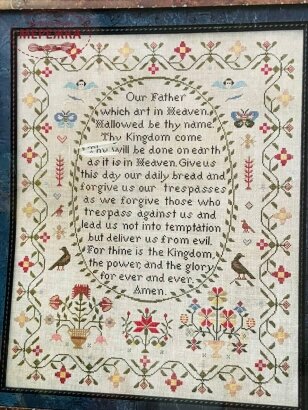 МЕРЕЖКА
Our Father
which art in Heaven,
Hallowed be thy name.
Thy Kingdom come
Thy will be done on earth
as it is in Heaven. Give us
this day our daily bread and
forgive us our trespasses
as we forgive those who
trespass against us and
lead us not into temptation
but deliver us from evil.
For thine is the Kingdom,
the power, and the glory
for ever and ever
Amen.